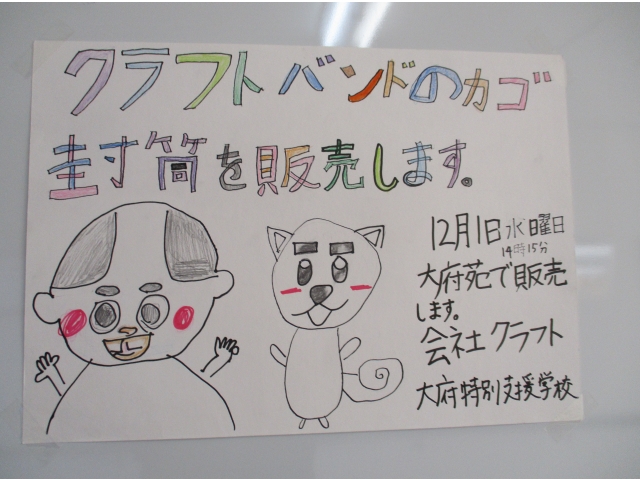 クラフトバンドのカゴ
封筒を販売します。
12月1日水曜日
14時15分
大府苑で販売
します。
会社クラフト
大府特別支援学校